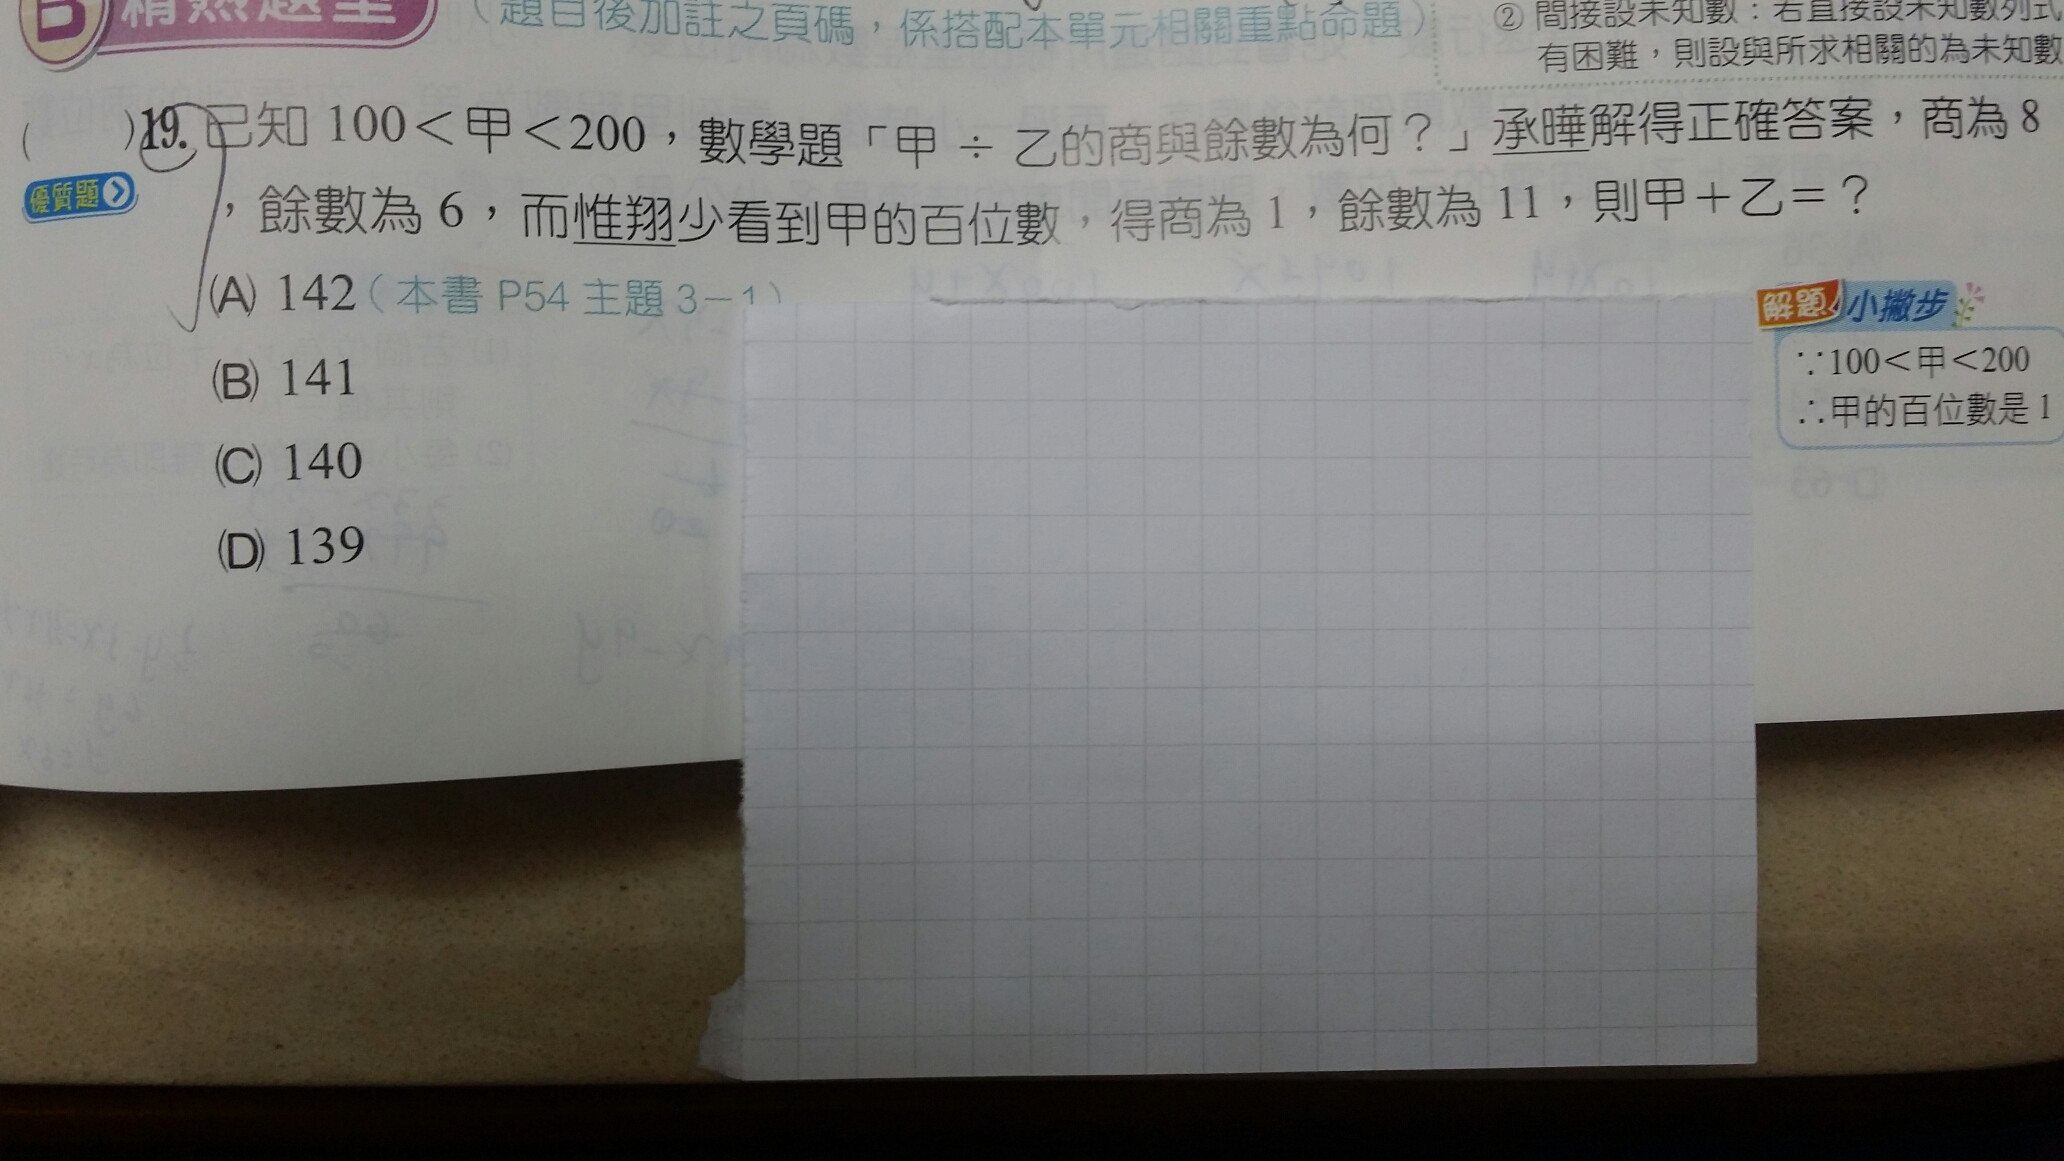 B 精熟題型
(題目後加註之頁碼，係搭配本單元相關重點命題)
② 間接設未知數：若直接設未知數列式
有困難，則設與所求相關的為未知數
(　　)19. 已知 100＜甲＜200，數學題「甲 ÷ 乙的商與餘數為何？」承曄解得正確答案，商為 8
優質題
，餘數為 6，而惟翔少看到甲的百位數，得商為 1，餘數為 11，則甲＋乙＝？
(A) 142（本書 P54 主題 3－1）
(B) 141
(C) 140
(D) 139
解題小撇步
∵100＜甲＜200
∴甲的百位數是 1